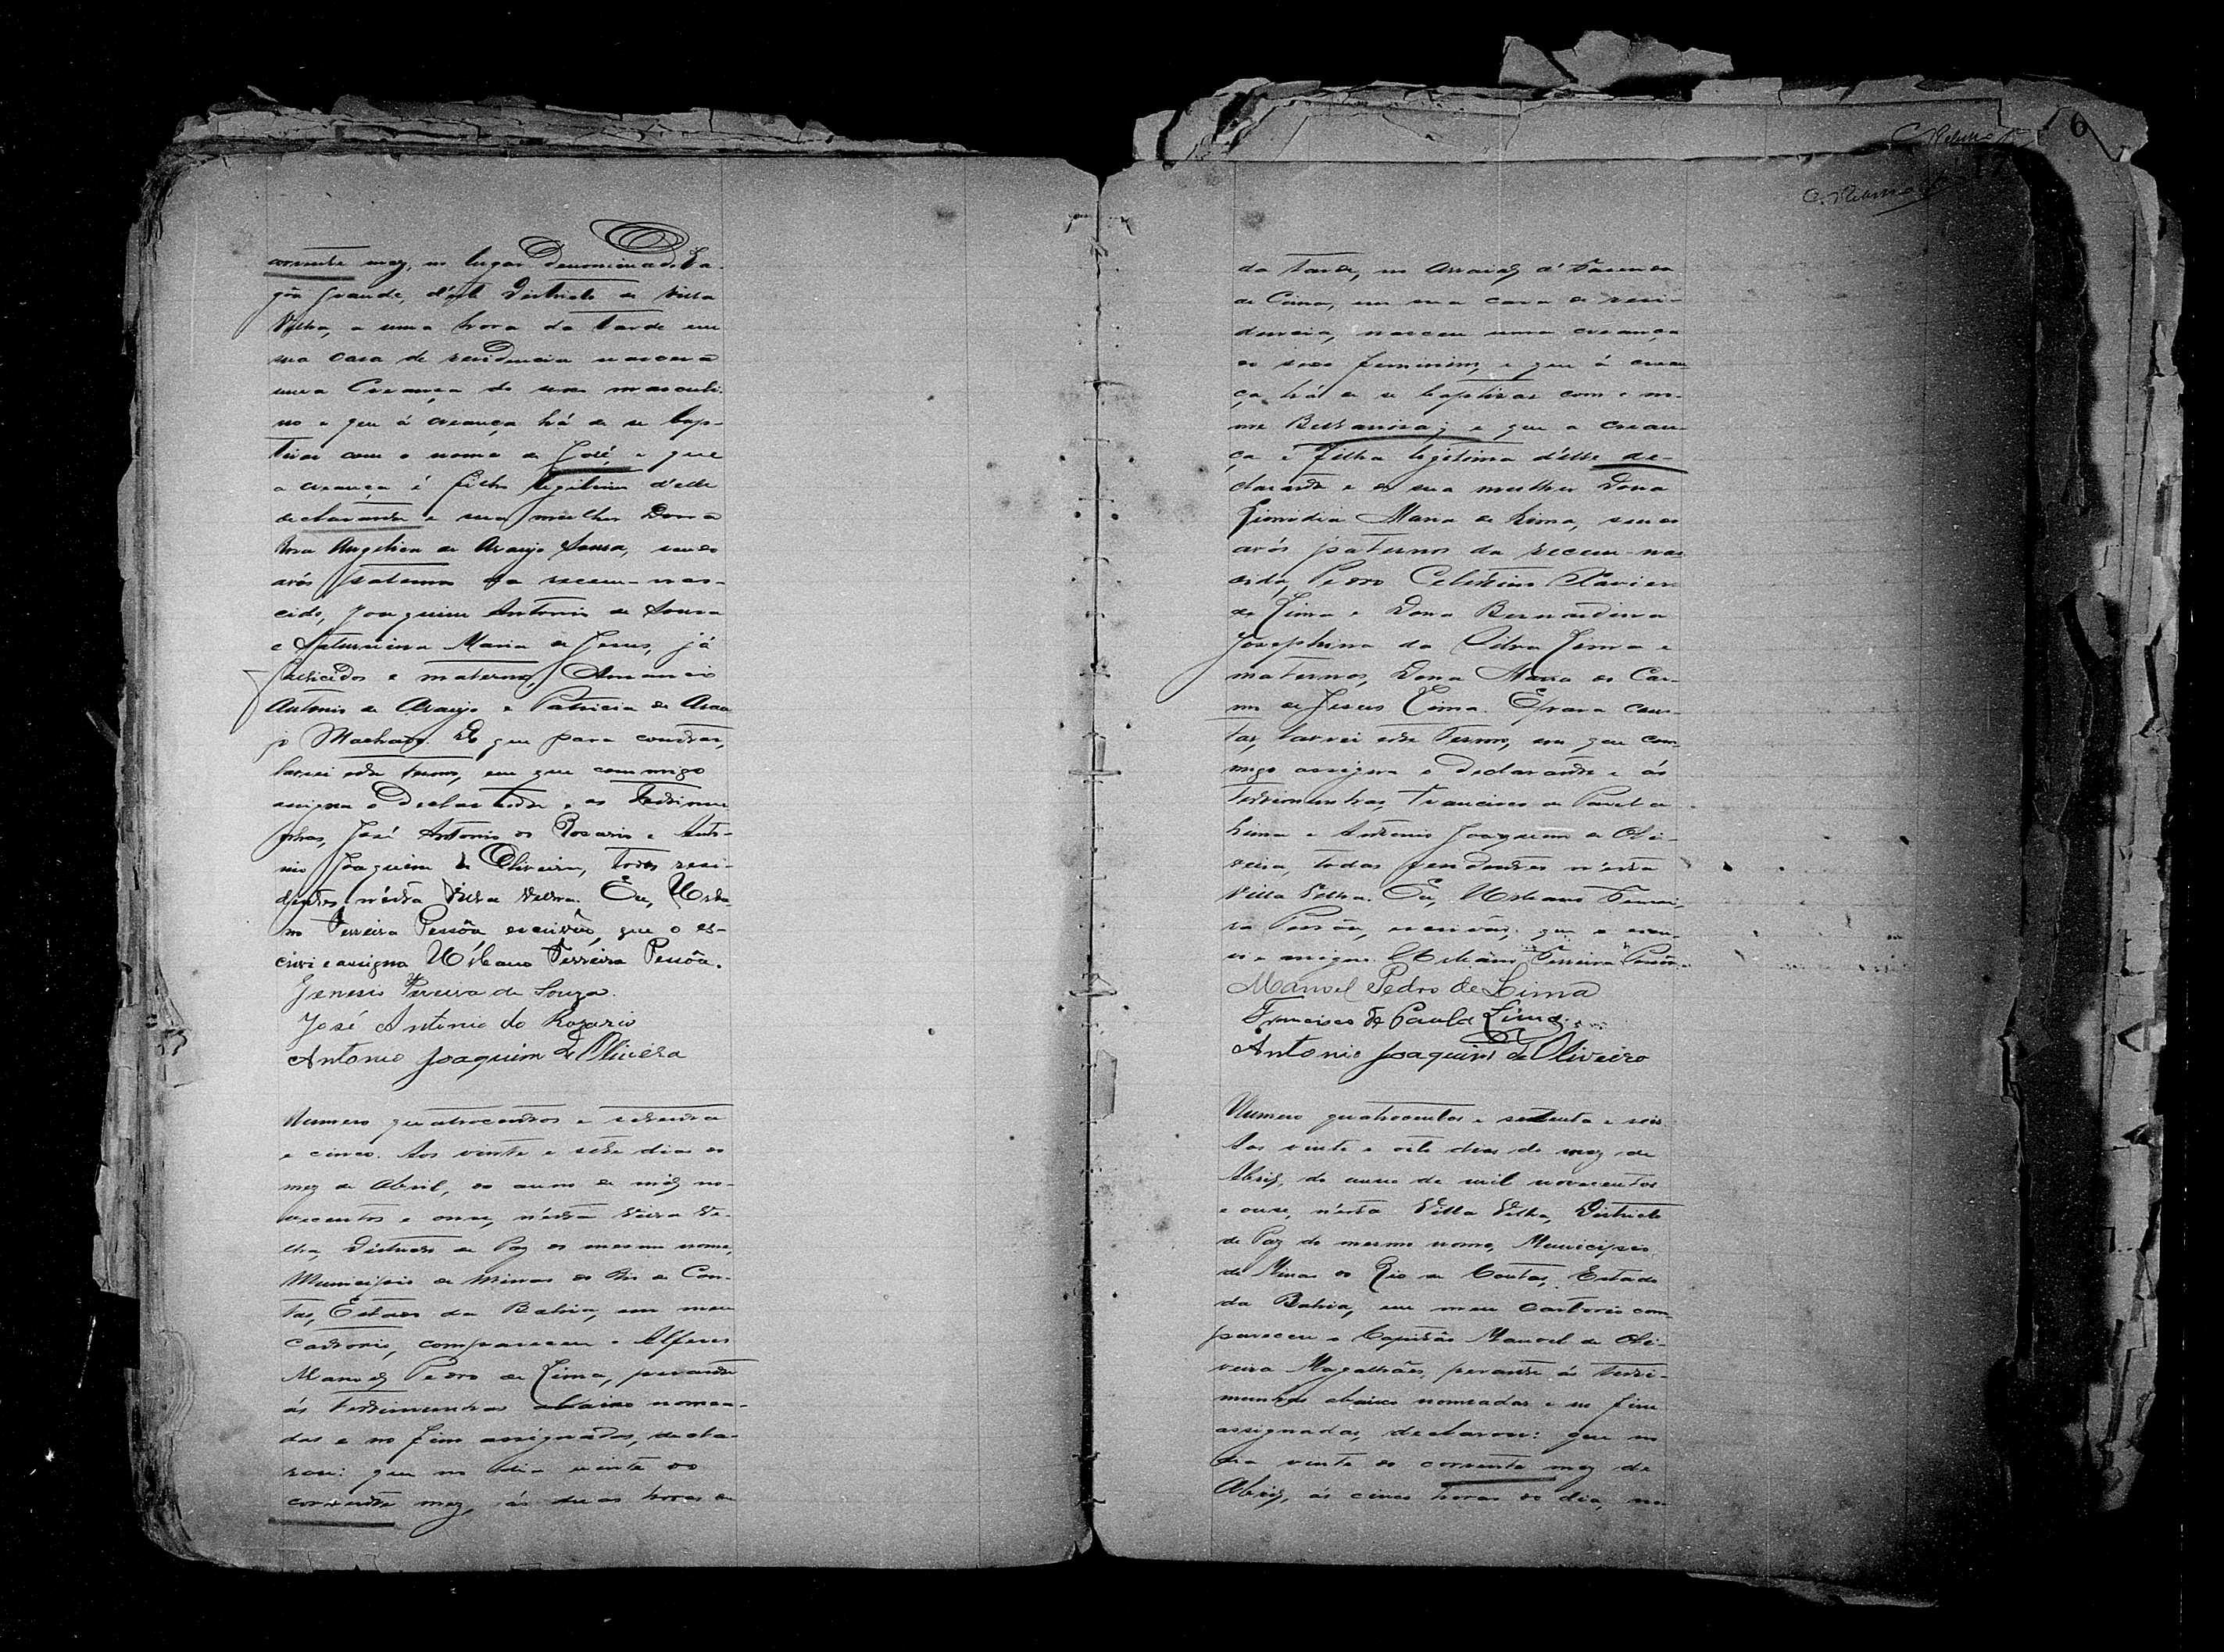 corrente mez, no lugar denominado La-
gôa Grande, d'este Districto de Villa
Velha, a uma hora da tarde em
sua casa de residencia nascera
uma Creança do sexo masculi-
no e que á creança há de se bap-
tisar com o nome de José e que
a creança é filho legitimo d'elle
declarante e sua mulher Dona
Rosa Angelica de Araujo Sousa, sendo
avós paternos do recem-nas-
cido, Joaquim Antonio de Sousa
e Saturnina Maria de Jesus, já
fallecidos e maternos, Amancio
Antonio de Araujo e Patricia de Arau-
jo Machado. Do que para constar,
lavrei este termo, em que commigo
assigna o Declarante e as testimu-
nhas, José Antonio do Rosario e Anto-
nio Joaquim de Oliveira, todos resi-
dentes n'ésta Villa Velha. Eu, Urba-
no Ferreira Pessôa escrivão, que o es-
crevi e assigno Urbano Ferreira Pessôa.
Genesio Pereira de Souza.
José Antonio do Rozario
Antonio Joaquim de Oliveira
Numero quatrocentos e setenta
e cinco. Aos vinte e sete dias do
mez de Abril, do anno de mil no-
vecentos e onze, n'ésta Villa Ve-
lha, Districto de Paz do mesmo nome,
Municipio de Minas do Rio de Con-
tas, Estado da Bahia, em meu
Cartorio, compareceu o Alferes
Manoel Pedro de Lima, perante
ás testimunhas abaixo nomea-
das e no fim assignadas, decla-
rou: que no dia vinte do
corrente mez, ás duas horas da
C. Rebm
da tarde, no Arraial d' Fazenda
de Cima, em sua casa de resi-
dencia, nasceu uma creança
do sexo feminino, e que á crean-
ça há de se baptisar com o no-
me ; e que a crean-
ça é filha legitima d'elle de-
clarante e de sua mulher Dona
Maria de Lima, sendo
avós paternos da recem-nas-
cida, Pedro Celestino Xavier
de Lima e Dona Bernardina
Josephina da Silva Lima e
maternos, Dona Maria do Car-
mo de Jesus Lima. E para cons-
tar, lavrei este Termo, em que com-
migo assigna o Declarante e ás
testimunhas, Francisco de Paula
Lima e Antonio Joaquim de Oli-
veira, todos residentes n'ésta
Villa Velha. Eu, Urbano Ferrei-
ra Pessôa, escrivão, que o escre-
vi e assigno. Urbano Ferreira Pessôa.
Manoel Pedro de Lima
Francisco de Paula Lima
Antonio Joaquim de Oliveira
Numero quatrocentos e setenta e seis
Aos vinte e oito dias do mez de
Abril, do anno de mil novecentos
e onze, n'ésta Villa Velha, Districto
de Paz do mesmo nome, Municipio
de Minas do Rio de Contas, Estado
da Bahia, em meu Cartorio com-
pareceu o Capitão Manoel de Oli-
veira Magalhães, perante ás testi-
munhas abaixo nomeadas e no fim
assignadas, declarou: que no
dia vinte do corrente mez de
Abril, ás cinco horas do dia, no